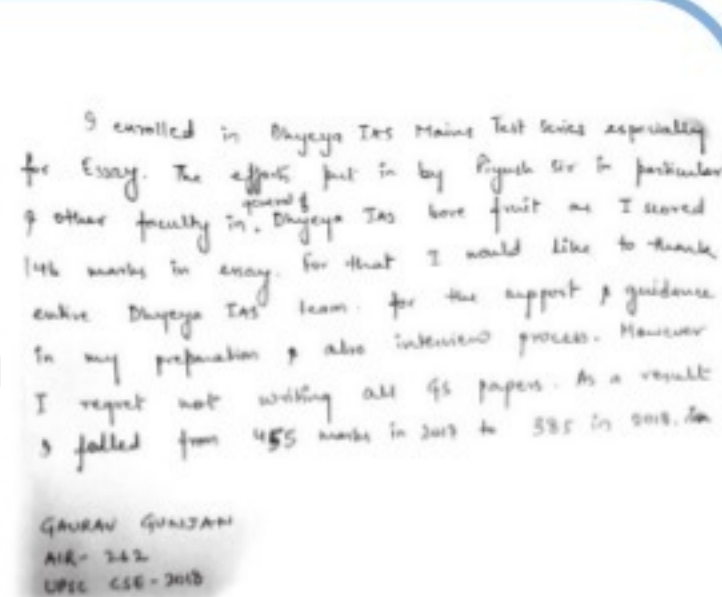 I enrolled in Dhyeya IAS Mains Test Series especially
for Essay. The efforts put in by Piyush Sir in particular
& other faculty in general of Dhyeya IAS bore fruit as I scored
146 marks in essay. For that I would like to thank
entire Dhyeya IAS team for the support & guidance
in my preparation & also interview process. However
I regret not writing all GS papers. As a result
I falled from 455 marks in 2017 to 385 in 2018. in
GAURAV GUNJAN
AIR-262
UPSC CSE-2018